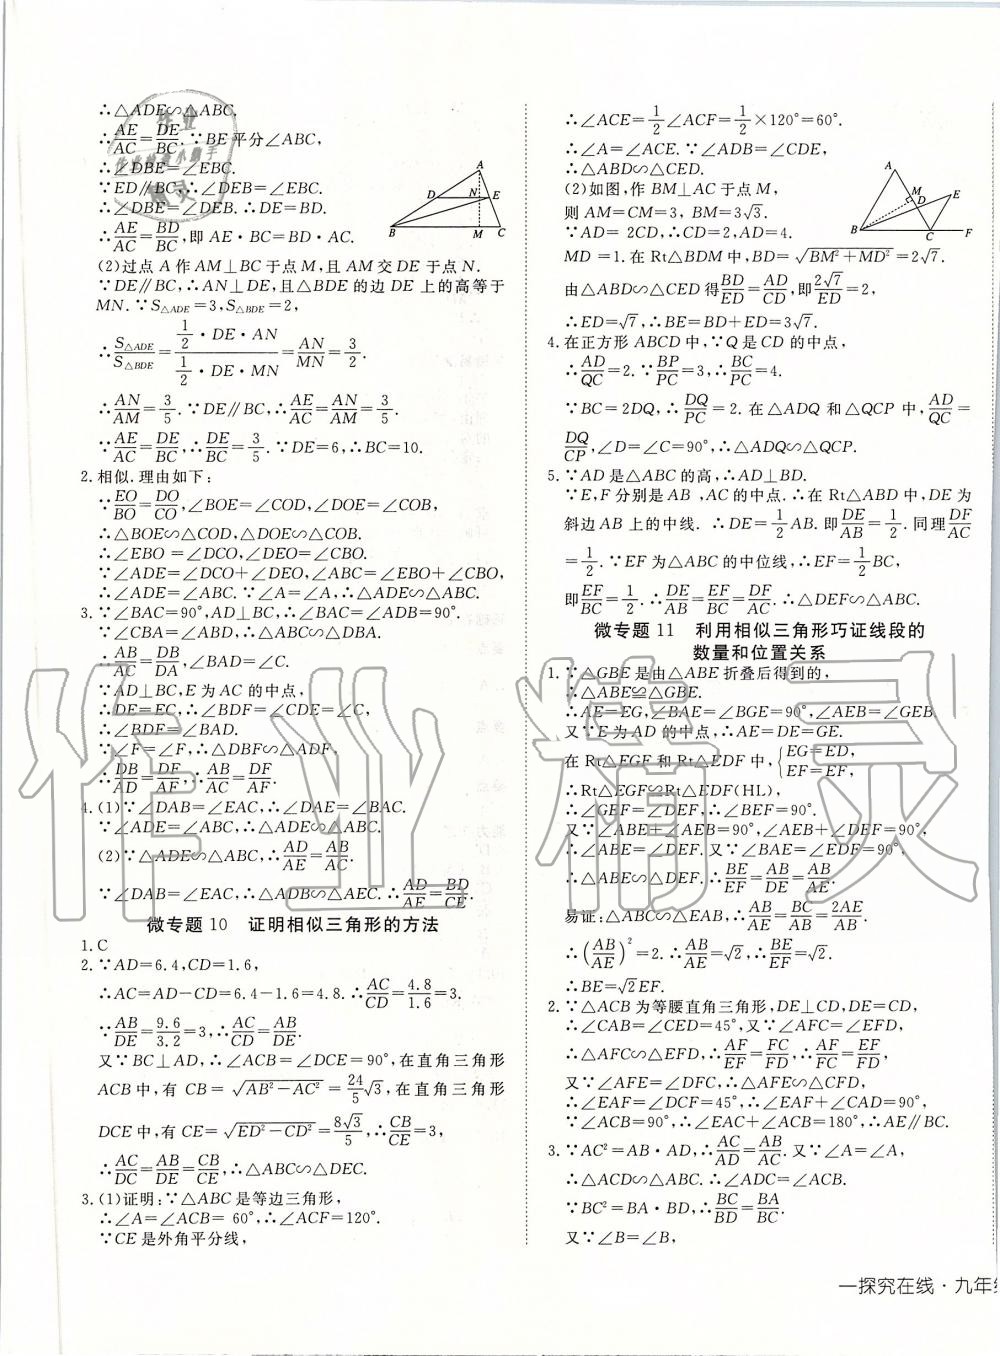 ∴△ADE∽△ABC.
∴AE/AC=DE/BC. ∵BE平分∠ABC,
∴∠DBE=∠EBC.
∵ED∥BC,∴∠DEB=∠EBC.
∴∠DBE=∠DEB. ∴DE=BD.
∴AE/AC=BD/BC,即AE·BC=BD·AC.
(2)过点A作AM⊥BC于点M,且AM交DE于点N.
∵DE∥BC,∴AN⊥DE,且△BDE的边DE上的高等于
MN. ∵S△ADE=3,S△BDE=2,
∴S△ADE/S△BDE=(1/2·DE·AN)/(1/2·DE·MN)=AN/MN=3/2.
∴AN/AM=3/5. ∵DE∥BC,∴AE/AC=AN/AM=3/5.
∵AE/AC=DE/BC,∴DE/BC=3/5. ∵DE=6,∴BC=10.
2.相似.理由如下:
∵EO/BO=DO/CO,∠BOE=∠COD,∠DOE=∠COB,
∴△BOE∽△COD,△DOE∽△COB.
∴∠EBO=∠DCO,∠DEO=∠CBO.
∵∠ADE=∠DCO+∠DEO,∠ABC=∠EBO+∠CBO,
∴∠ADE=∠ABC. ∵∠A=∠A,∴△ADE∽△ABC.
3.∵∠BAC=90°,AD⊥BC,∴∠BAC=∠ADB=90°.
∵∠CBA=∠ABD,∴△ABC∽△DBA.
∴AB/AC=DB/DA,∠BAD=∠C.
∵AD⊥BC,E为AC的中点,
∴DE=EC,∴∠BDF=∠CDE=∠C,
∴∠BDF=∠BAD.
∵∠F=∠F,∴△DBF∽△ADF,
∴DB/AD=DF/AF,∴AB/AC=DF/AF.
4.(1)∵∠DAB=∠EAC,∴∠DAE=∠BAC.
∵∠ADE=∠ABC,∴△ADE∽△ABC.
(2)∵△ADE∽△ABC,∴AD/AE=AB/AC.
∵∠DAB=∠EAC,∴△ADB∽△AEC. ∴AD/AE=BD/CE.
微专题10 证明相似三角形的方法
1.C
2.∵AD=6.4,CD=1.6,
∴AC=AD−CD=6.4−1.6=4.8. ∴AC/CD=4.8/1.6=3.
∵AB/DE=9.6/3.2=3,∴AC/CD=AB/DE.
又∵BC⊥AD,∴∠ACB=∠DCE=90°,在直角三角形
ACB中,有CB=√(AB²−AC²)=24/5√3,在直角三角形
DCE中,有CE=√(ED²−CD²)=8√3/5,∴CB/CE=3,
∴AC/DC=AB/DE=CB/CE,∴△ABC∽△DEC.
3.(1)证明:∵△ABC是等边三角形,
∴∠A=∠ACB=60°,∴∠ACF=120°.
∵CE是外角平分线,
∴∠ACE=1/2∠ACF=1/2×120°=60°.
∴∠A=∠ACE. ∵∠ADB=∠CDE,
∴△ABD∽△CED.
(2)如图,作BM⊥AC于点M,
则AM=CM=3,BM=3√3.
∵AD=2CD,∴CD=2,AD=4.
MD=1.在Rt△BDM中,BD=√(BM²+MD²)=2√7.
由△ABD∽△CED得BD/ED=AD/CD,即2√7/ED=2,
∴ED=√7,∴BE=BD+ED=3√7.
4.在正方形ABCD中,∵Q是CD的中点,
∴AD/QC=2. ∵BP/PC=3,∴BC/PC=4.
∵BC=2DQ,∴DQ/PC=2.在△ADQ和△QCP中,AD/QC=
DQ/CP,∠D=∠C=90°,∴△ADQ∽△QCP.
5.∵AD是△ABC的高,∴AD⊥BD.
∵E,F分别是AB,AC的中点.∴在Rt△ABD中,DE为
斜边AB上的中线.∴DE=1/2AB.即DE/AB=1/2.同理DF/AC
=1/2. ∵EF为△ABC的中位线,∴EF=1/2BC,
即EF/BC=1/2. ∴DE/AB=EF/BC=DF/AC. ∴△DEF∽△ABC.
微专题11 利用相似三角形巧证线段的
数量和位置关系
1.∵△GBE是由△ABE折叠后得到的,
∴△ABE≌△GBE.
∴AE=EG,∠BAE=∠BGE=90°,∠AEB=∠GEB.
又∵E为AD的中点,∴AE=DE=GE.
在Rt△EGF和Rt△EDF中,{EG=ED,
EF=EF,
∴Rt△EGF≌Rt△EDF(HL),
∴∠GEF=∠DEF,∴∠BEF=90°.
又∵∠ABE+∠AEB=90°,∠AEB+∠DEF=90°,
∴∠ABE=∠DEF.又∵∠BAE=∠BEF=90°,
∴△ABE∽△EBF,∴BE/EF=AB/DE=AB/AE.
易证:△ABC∽△EAB,∴AB/AE=BC/AB=2AE/AB.
∴(AB/AE)²=2. ∴AB/AE=√2,∴BE/EF=√2,
∴BE=√2EF.
2.∵△ACB为等腰直角三角形,DE⊥CD,DE=CD,
∴∠CAB=∠CED=45°,又∵∠AFC=∠EFD,
∴△AFC∽△EFD,∴AF/EF=FC/FD,∴AF/FC=EF/FD,
又∵∠AFE=∠DFC,∴△AFE∽△CFD,
∴∠EAF=∠DCF=45°,∴∠EAF+∠CAD=90°,
∵∠ACB=90°,∴∠EAC+∠ACB=180°,∴AE∥BC.
3.∵AC²=AB·AD,∴AC/AD=AB/AC.又∵∠A=∠A,
∴△ACD∽△ABC. ∴∠ADC=∠ACB.
∵BC²=BA·BD,∴BC/BD=BA/BC.
又∵∠B=∠B,
A
D
N
E
B
M
C
A
M
D
E
B
C
F
作业精灵
一探究在线·九年级